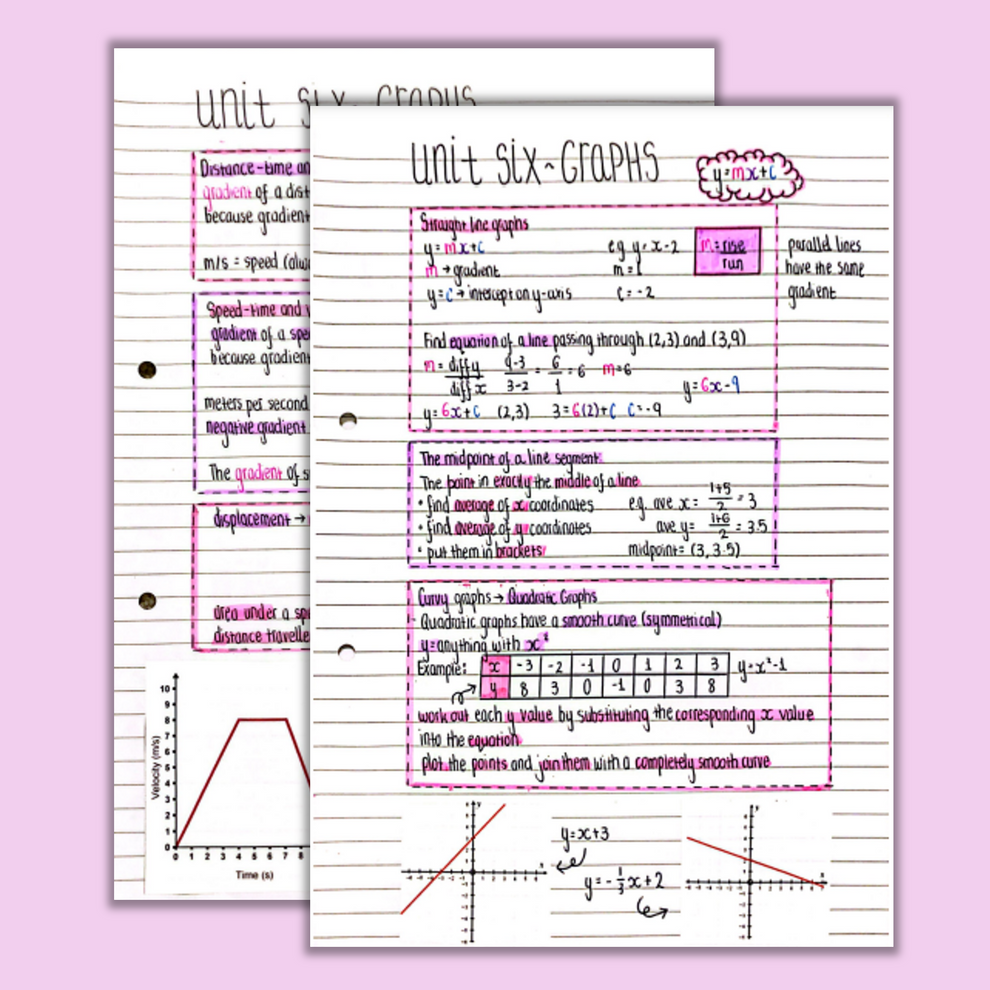 unit six - Graphs
Distance-time an
gradient of a dist
because gradient
m/s = speed (alwa
Speed-time and v
gradient of a spe
because gradient
meters per second
negative gradient
The gradient of s
displacement →
area under a sp
distance travelle
Velocity (m/s)
10
9
8
7
6
5
4
3
2
1
0
0 1 2 3 4 5 6 7 8
Time (s)
unit six ~ GRAPHS
y=mx+c
Straight line graphs
y=mx+c e.g. y=x-2 m=rise/run parallel lines
m→gradient m=1 have the same
y=c→intercept on y-axis c=-2 gradient
Find equation of a line passing through (2,3) and (3,9)
m= diff y/diff x 9-3/3-2 = 6/1 = 6 m=6
y=6x-9
y=6x+c (2,3) 3=6(2)+c c=-9
The midpoint of a line segment
The point in exactly the middle of a line
• find average of x coordinates e.g. ave x= 1+5/2 = 3
• find average of y coordinates ave y= 1+6/2 = 3.5
• put them in brackets midpoint= (3, 3.5)
Curvy graphs → Quadratic Graphs
Quadratic graphs have a smooth curve (symmetrical)
y=anything with x²
Example: x -3 -2 -1 0 1 2 3 y=x²-1
y 8 3 0 -1 0 3 8
work out each y value by substituting the corresponding x value
into the equation
plot the points and join them with a completely smooth curve
y=x+3
y=-1/3x+2